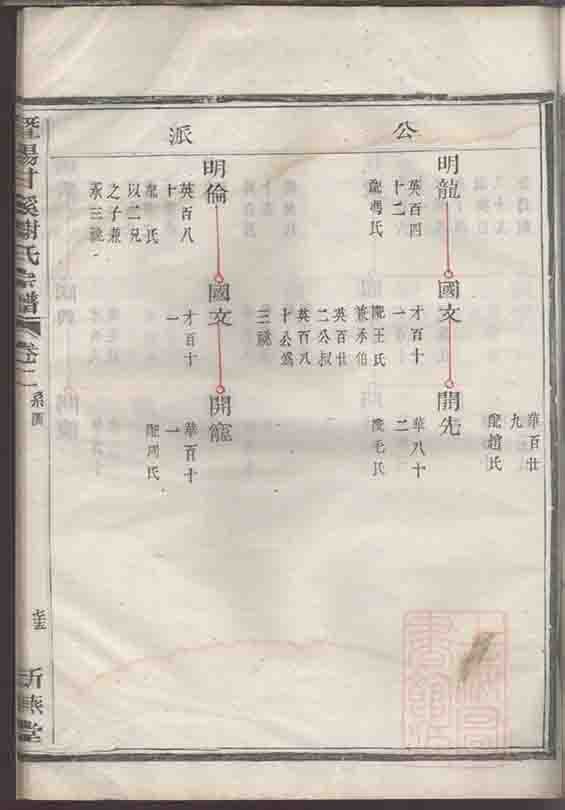 公
派
華百廿
九
配趙氏
明龍
英百四
十二
配馮氏
國文
才百十
一
配王氏
兼承伯
英百廿
二公叔
英百八
十公為
三祧
開先
華八十
二
配毛氏
明倫
英百八
十
配 氏
以二兄
之子兼
承三祧
國文
才百十
一
開寵
華百十
一
配周氏
暨陽甘溪謝氏宗譜
卷二
系圖